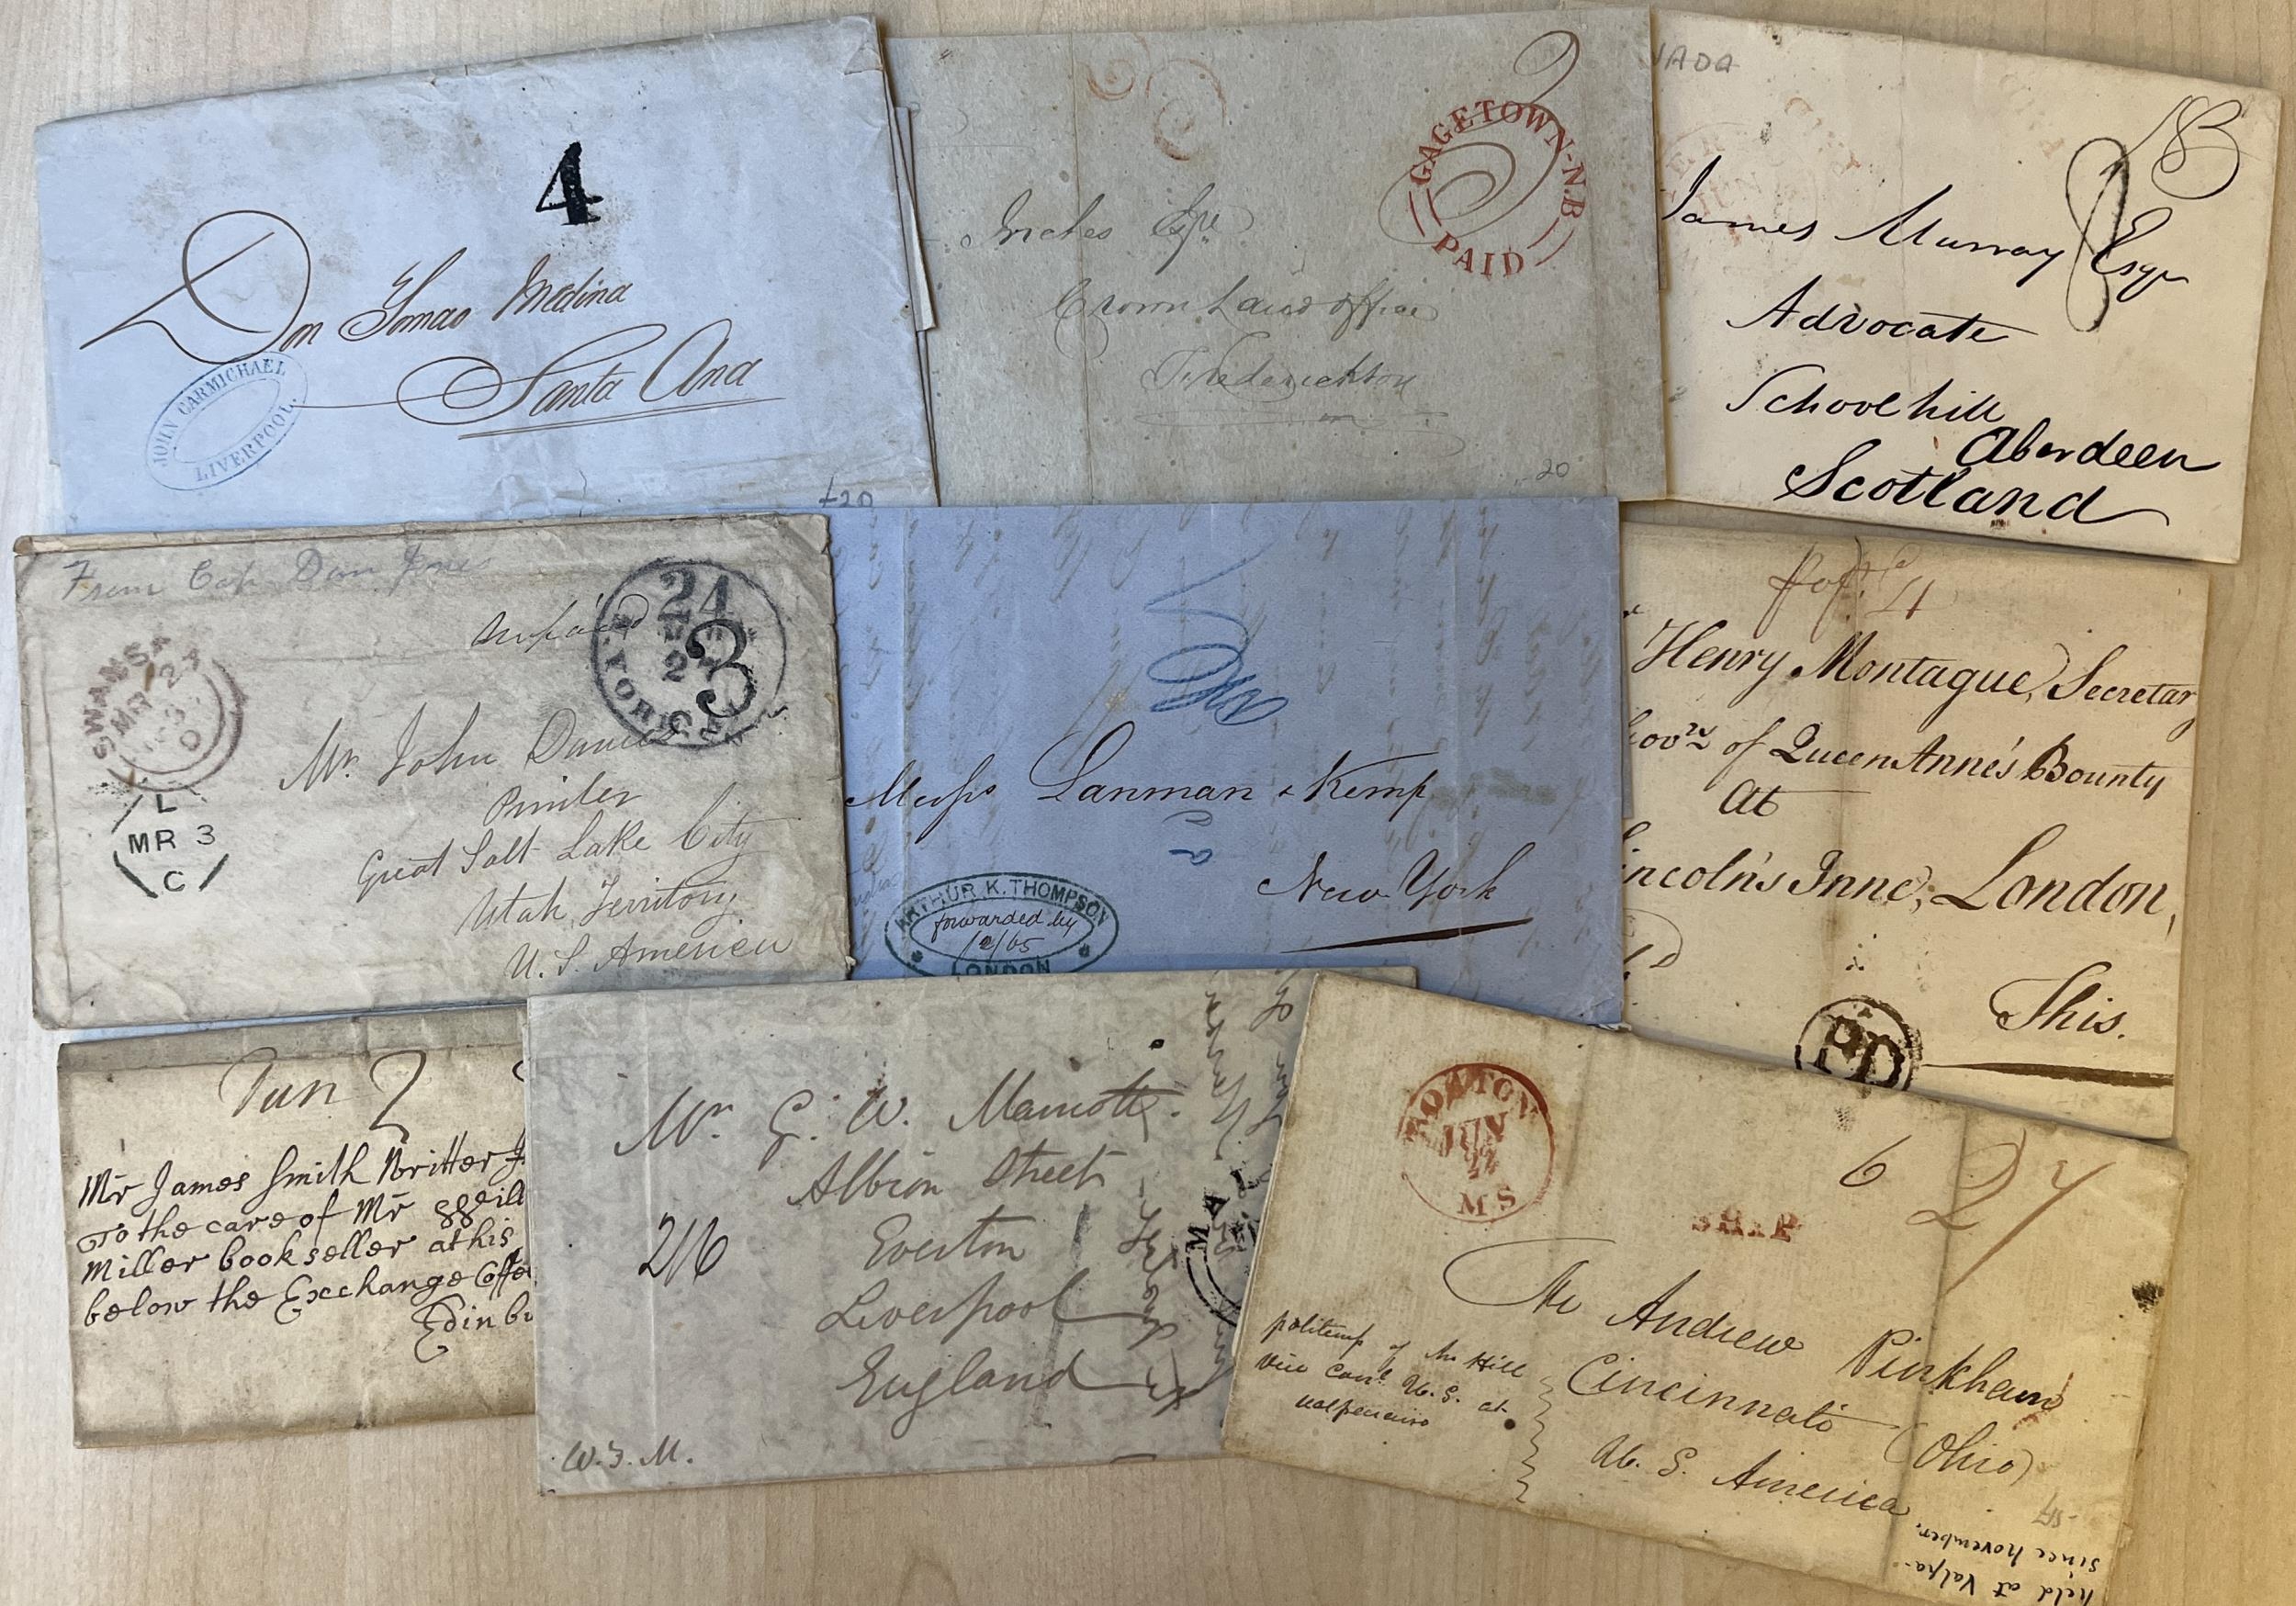 4
Don Tomas Medina
Santa Ana
JOHN CARMICHAEL
LIVERPOOL
£20
3
GAGETOWN-N.B
PAID
Inches Esqre
Crown Land office
Fredericton
20
NADA
James Murray Esqr
Advocate
Schoolhill
Aberdeen
Scotland
From Cap Dan Jones
unpaid
24
3
YORK
SWANSEA
MR 2
L
MR 3
C
Mr. John Davies
Printer
Great Salt Lake City
Utah Territory
U. S. America
Messrs Lanman & Kemp
New York
ARTHUR K. THOMPSON
forwarded by
12/65
LONDON
4
Henry Montague, Secretar
Govrs of Queen Anne's Bounty
At
incoln's Inne, London,
This.
PD
2
Mr James Smith Writter
To the care of Mr Will
Miller bookseller at his
below the Exchange Coffe
Edinbu
Mr. G. W. Marriott
Albion Street
Everton
Liverpool
England
2/6
W. J. M.
BOSTON
JUN
22
MS
6
27
SHIP
Mr Andrew Pinkham
Cincinnati
(Ohio)
U. S. America
politeness of Mr Hill
Vice Consl U. S. at
Valparaiso
held at Valpa-
since november.